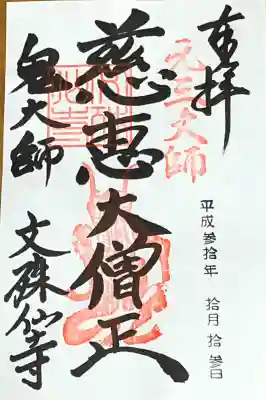 奉拝
元三大師
平成参拾年 拾月 拾参日
慈恵大僧正
鬼大師
文殊仙寺